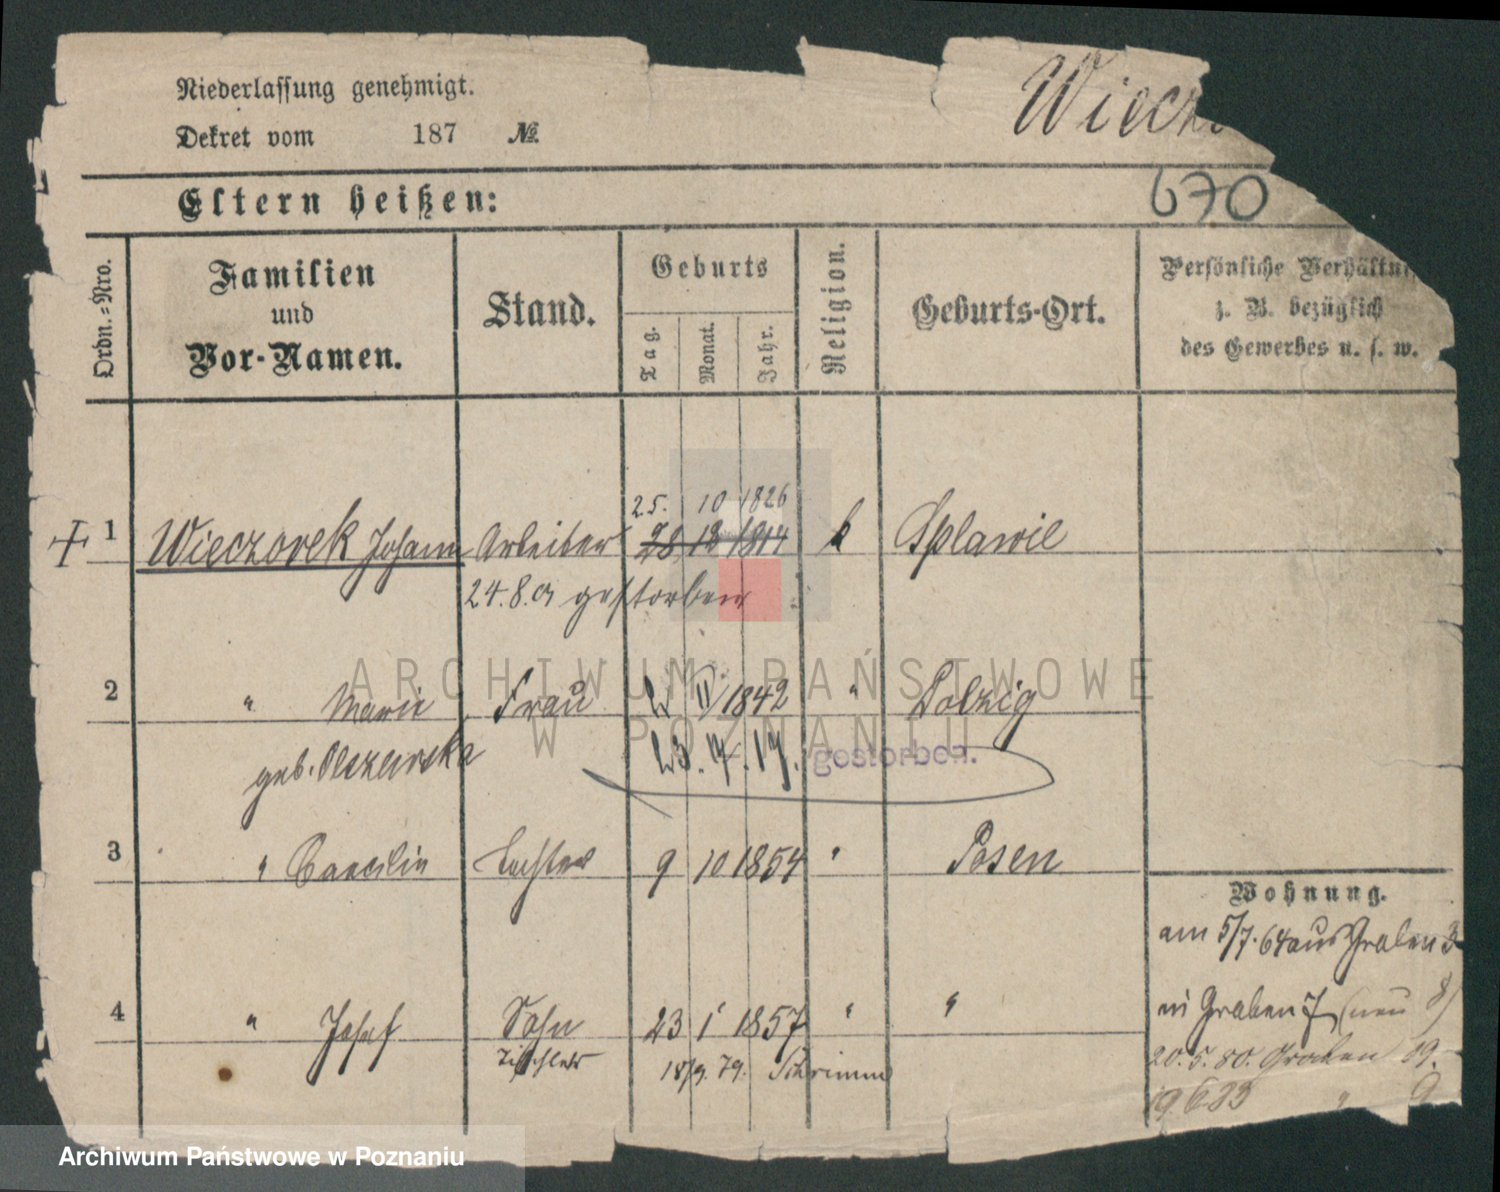 Niederlassung genehmigt.
Wiecz
Dekret vom 187 №
Eltern heißen:
670
Ordn.-Nro.
Familien
und
Vor-Namen.
Stand.
Geburts
Tag.
Monat.
Jahr.
Religion.
Geburts-Ort.
Persönliche Verhältni
z. B. bezüglich
des Gewerbes u. s. w.
25. 10 1826
1 Wieczorek Johann Arbeiter 28 12 1814 k Splawie
24.8.01 gestorben
ARCHIWUM PAŃSTWOWE
W POZNANIU
2 " Marie Frau 2 11 1842 " Polzig
geb. Olszewska 23. 7. 17. gestorben.
3 " Caecilie Tochter 9 10 1854 " Posen
Wohnung.
am 5/7. 64 aus Graben 3
4 " Josef Sohn 23 1 1857 " "
in Graben 7 (neu 8)
Tischler 18/9. 79. Schrimm
20. 5. 80. Graben 19.
19 6 83 " 9
Archiwum Państwowe w Poznaniu